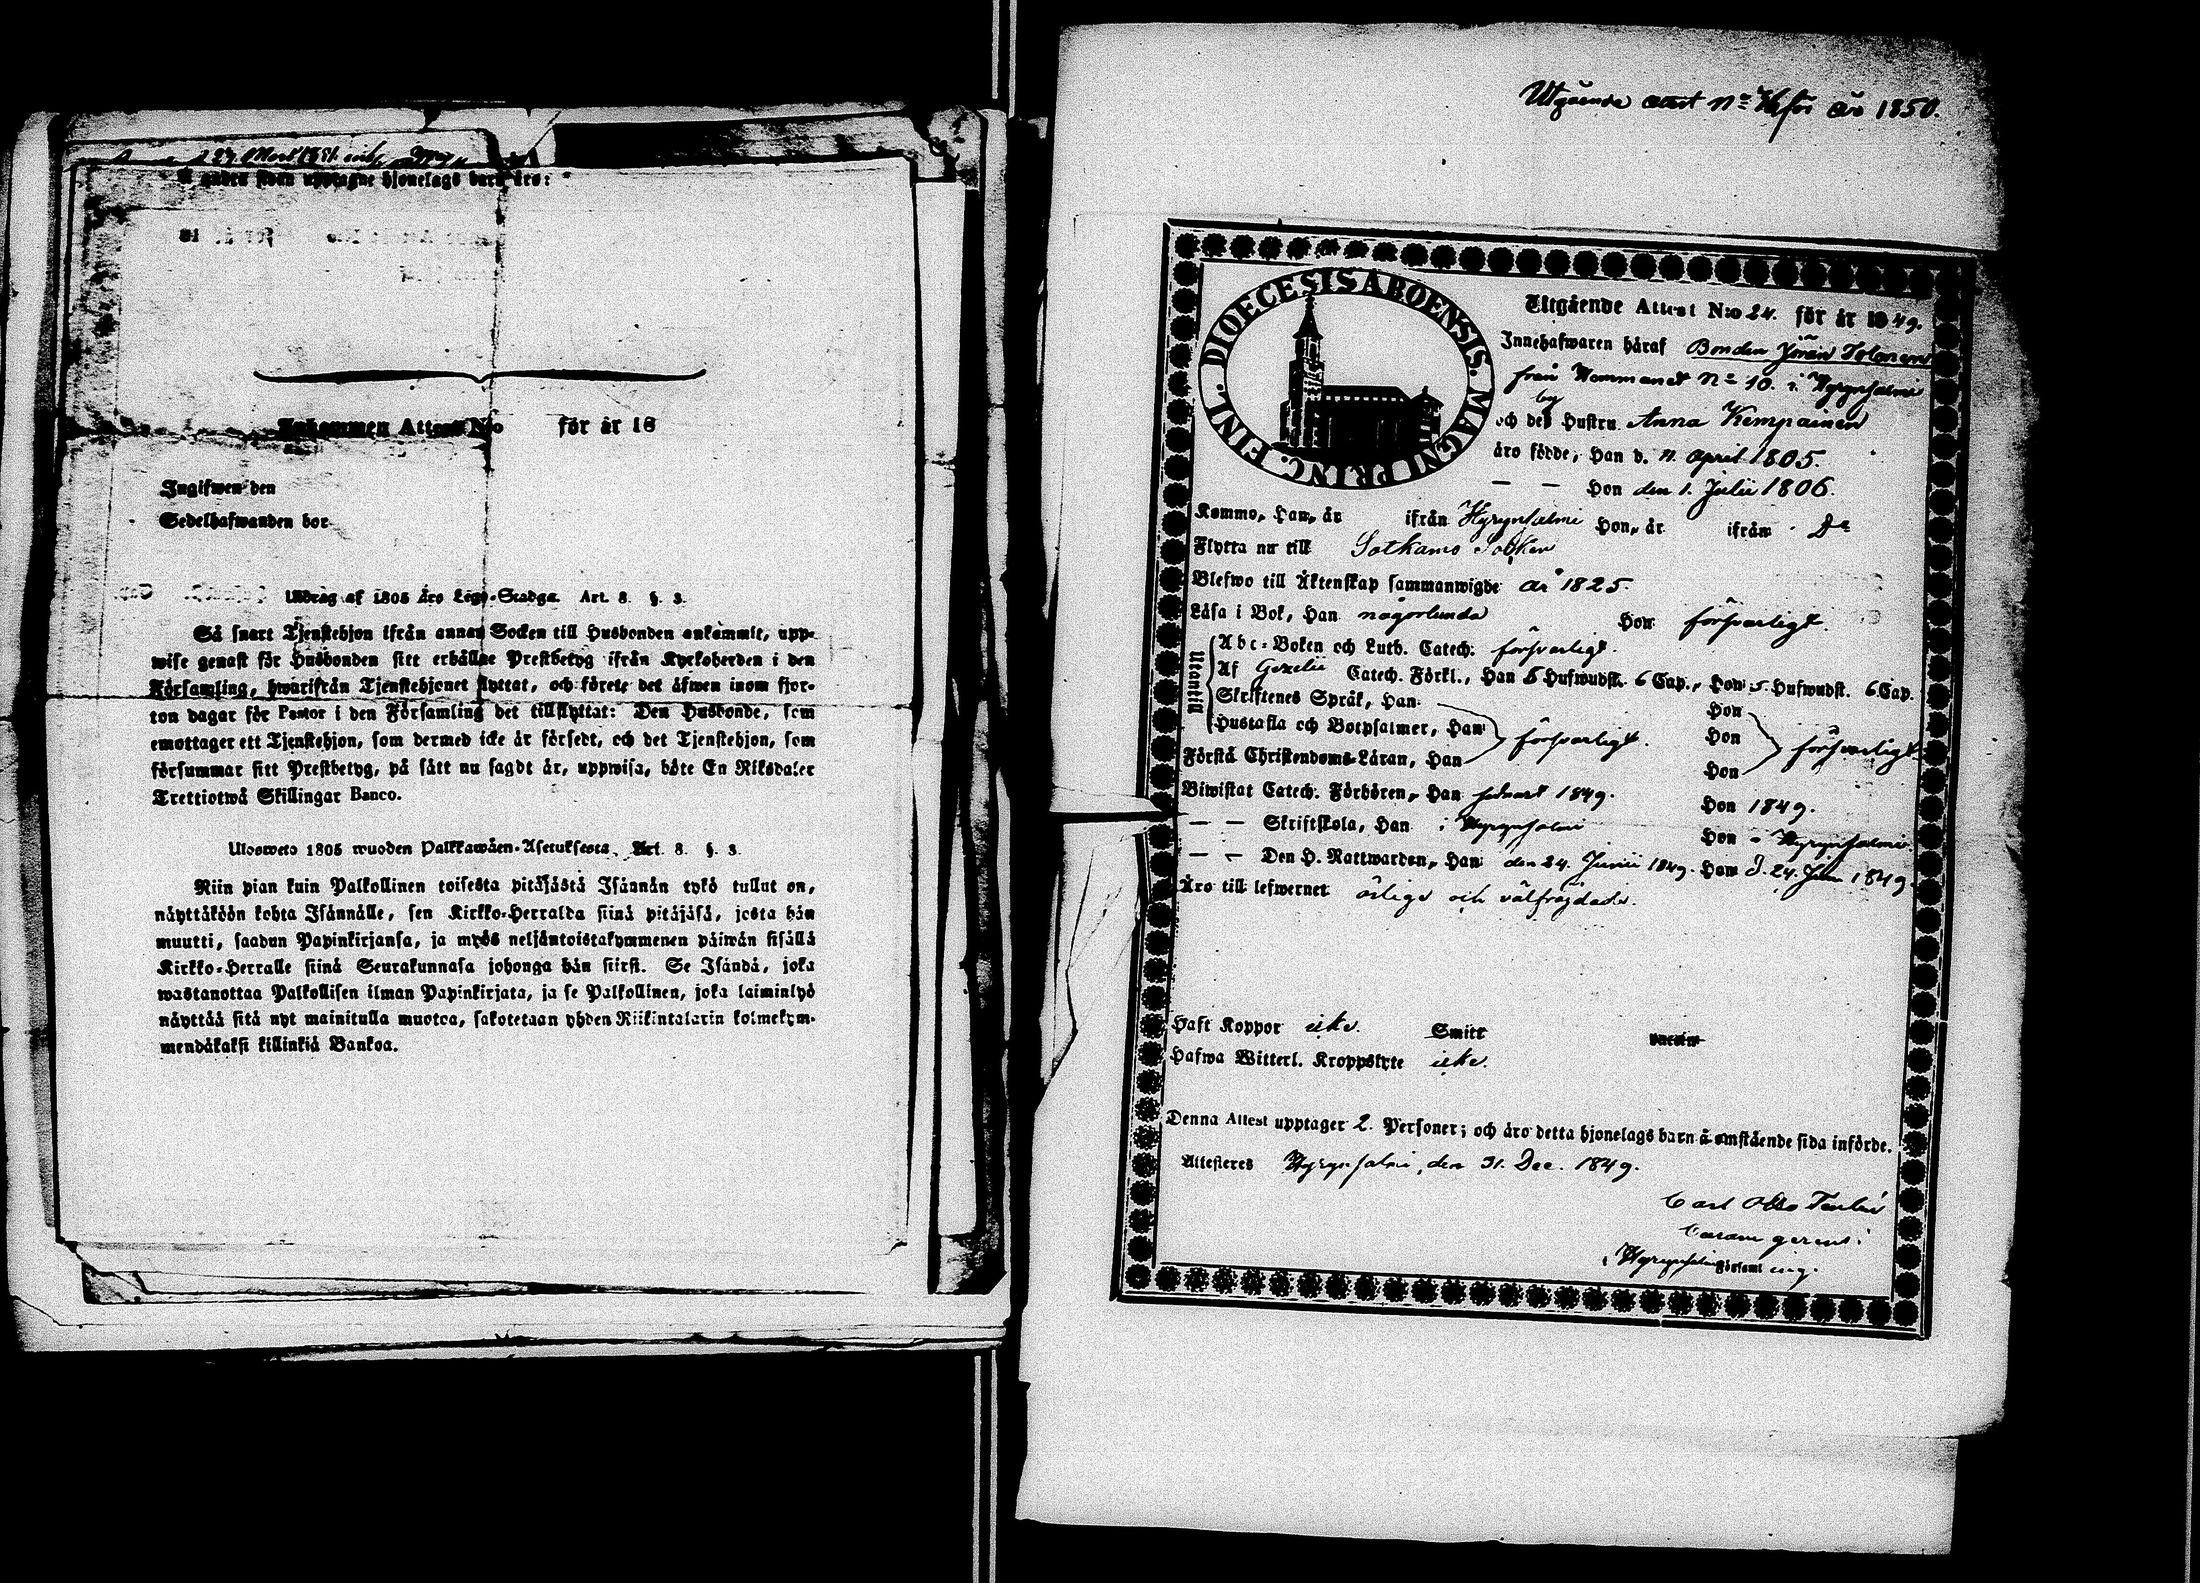 27 Mart 1851
sidan upptagne hjonelags barn äro:
Inkommen Attest No för år 18
Ingifwen den
Sedelhafwanden bor
Utdrag af 1805 Års Lego-Stadga Art. 8. §. 3.
Så snart Tjenstehjon ifrån annan Socken till Husbonden ankommit, upp-
wise genast för Husbonden sitt erhållne Prestbetyg ifrån Kyrkoherden i den
Församling, hwarifrån Tjenstehjonet flyttat, och förete det äfwen inom fjor-
ton dagar för Pastor i den Församling det tillflyttat: Den Husbonde, som
emottager ett Tjenstehjon, som dermed icke är försedt, och det Tjenstehjon, som
försummar sitt Prestbetyg, på sätt nu sagdt är, uppwisa, böte En Riksdaler
Trettiotwå Skillingar Banco.
Ulosweto 1805 wuoden Palkkawäen-Asetuksesta, Art. 8. §. 3.
Niin pian kuin Palkollinen toisesta pitäjästä Isännän tykö tullut on,
näyttäköön kohta Isännälle, sen Kirkko-Herralda siinä pitäjäsä, josta hän
muutti, saadun Papinkirjansa, ja myös neljäntoistakymmenen päiwän sisällä
Kirkko-Herralle siinä Seurakunnasa johonga hän siirsi. Se Isändä, joka
wastanottaa Palkollisen ilman Papinkirjata, ja se Palkollinen, joka laiminlyö
näyttää sitä nyt mainitulla muotoa, sakotetaan yhden Riikintalarin kolmekym-
mendäkaksi killinkiä Bankoa.
Utgående attest No för år 1850.
FINL. DIOECESIS ABOENSIS. MAGNI PRINC.
Utgående Attest N:o 24. för år 1849.
Innehafwaren häraf Bonden Jöran Tolonen
från Hemmanet No 10. i Hyrynsalmi
by
och des Hustru Anna Kempainen
äro födde, Han d. 11. April 1805.
— — Hon den 1. Julii 1806.
Kommo, Han, år ifrån Hyrynsalmi Hon, år ifrån Do
Flytta nu till Sotkamo Socken
Blefwo till Äktenskap sammanwigde år 1825.
Läsa i Bok, Han någorlunda Hon försvarligt.
Utantill
Abc-Boken och Luth. Catech. försvarligt.
Af Gezelii Catech. Förkl., Han 5 Hufwudst. 6 Cap., Hon 5. Hufwudst. 6 Cap.
Skriftenes Språk, Han Hon
Hustafla och Botpsalmer, Han försvarligt. Hon försvarligt
Förstå Christendoms-Läran, Han Hon
Biwistat Catech. Förhören, Han senast 1849. Hon 1849.
— — Skriftskola, Han i Hyrynsalmi Hon i Hyrynsalmi.
— — Den H. Nattwarden, Han den 24. Junii 1849. Hon d. 24. Jun 1849.
Äro till lefwernet ärlige och välfrägdade.
Haft Koppor icke. Smitt
Hafwa Witterl. Kroppslyte icke.
Denna Attest upptager 2. Personer; och äro detta hjonelags barn å omstående sida införde.
Attesteras Hyrynsalmi, den 31. Dec. 1849.
Carl Otto
Curam gerens i
Hyrynsalmi Församling.